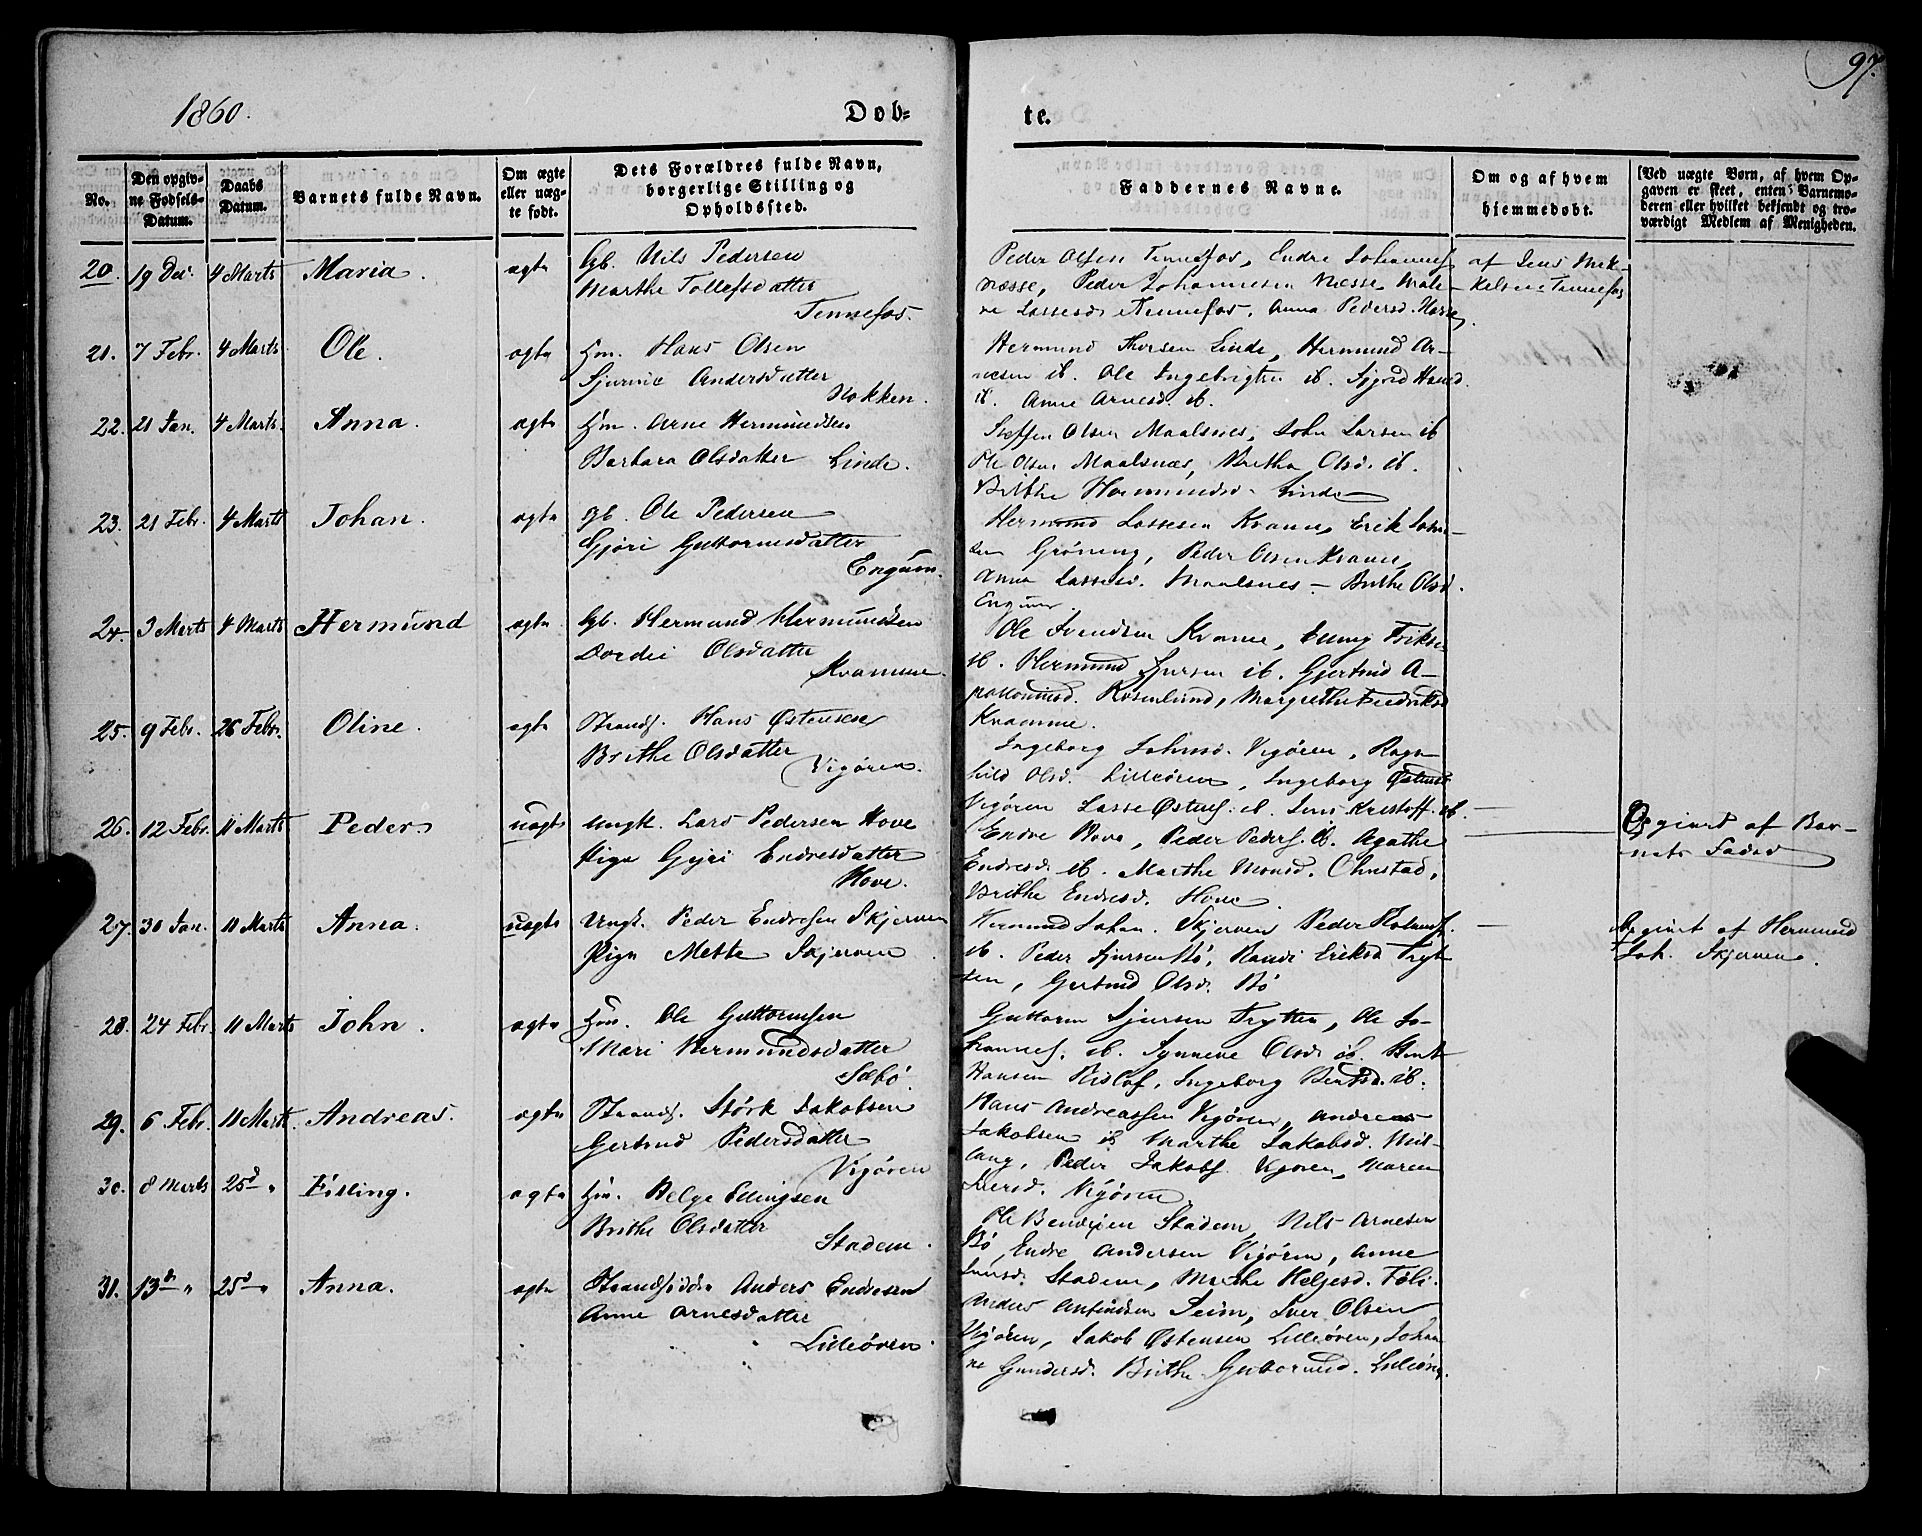 97.
1860. Døb- te.
No. Den opgivne Fødsels-Datum. Daabs Datum. Barnets fulde Navn. Om ægte eller uægte født. Dets Forældres fulde Navn, borgerlige Stilling og Opholdssted. Faddernes Navne. Om og af hvem hjemmedøbt. [Ved uægte Børn, af hvem Opgaven er skeet, enten Barnemoderen eller hvilket bekjendt og troværdigt Medlem af Menigheden.
20. 19 Dec. 4 Marts Maria. ægte Gb. Nils Pedersen
Marthe Tollefsdatter
Tennefos.
Peder Olsen Tennefos, Endre Johannes
Næsse, Peder Johannesen Næsse, Male-
ne Lassesd. Tennefos. Anna Pedersd. Næsse
af Jens Mik-
kelsen Tennefos
21. 7 Febr. 4 Marts Ole. ægte Hm. Hans Olsen
Andersdatter
Nokken.
Hermund Linde, Hermund Ar-
nesen ib. Ole Ingebrigtsen ib.
ib. Anne Arnesd. ib.
22. 21 Jan. 4 Marts. Anna. ægte Hm. Arne Hermundsen
Barbara Olsdatter Linde.
Steffen Olsen Maalsnes, John Larsen ib
Ole Olsen Maalsnæs, Britha Olsd. ib.
Brithe Hermundsd. Linde
23. 21 Febr. 4 Marts Johan. ægte Gb. Ole Pedersen
Gjøri Guttormsdatter
Engum.
Hermund Lassesen Kvame, Erik
Grøning, Peder Olsen Kvame,
Anna Lassesd. Maalsnes - Brithe Olsd.
Engum.
24. 3 Marts 4 Marts Hermund ægte Gb. Hermund Hermundsen
Dordei Olsdatter
Kvamme.
Ole Svendsen Kvame,
ib. Hermund Sjursen ib. Gjertrud A-
Rosenlund, Margrethe Fredriksd
Kvamme.
25. 9 Febr. 26 Febr. Oline. ægte Strands. Hans Østensen
Brithe Olsdatter
Vigøren.
Ingeborg Johnsd. Vigøren, Ragn-
hild Olsd. Lilleøren, Ingeborg Østensd
Vigøren Lasse Østens. ib. Jens Kristoff. ib.
26. 12 Febr. 11 Marts Peder. uægte Ungk. Lars Pedersen Hove
Pige Gjøri Endresdatter
Hove.
Endre Hove, Peder Peders. ib. Agathe
Endresd. ib. Marthe Monsd. Ohnstad,
Brithe Endresd. Hove.
Opgivet af Bar-
nets Fader
27. 30 Jan. 11 Marts Anna. uægte Ungk. Peder Endresen Skjerven
Pige Mette Skjerven.
Hermund Johan. Skjerven Peder
ib. Peder Sjursen Bø, Randi Eriksd Tryt-
ten, Gertrud Olsd. Bø
Opgivet af Hermund
Joh. Skjerven.
28. 24 Febr. 11 Marts John. ægte Hm. Ole Guttormsen
Mari Hermundsdatter
Sæbø.
Guttorm Sjursen Trytten, Ole Jo-
hannes. ib. Synneve Olsd. ib. Bent
Hansen Ingeborg Bentsd. ib.
29. 6 Febr. 11 Marts. Andreas. ægte Strands. Størk Jakobsen
Gertrud Pedersdatter
Vigøren
Hans Andreassen Vigøren, Andreas
Jakobsen ib Marthe Jakobsd.
Peder Jakobs. Vigøren, Maren
Iversd. Vigøren
30. 8 Marts 25d " Elling. ægte Hm. Helge Ellingsen
Brithe Olsdatter
Stadem.
Ole Bendixen Stadem, Nils Arnesen
Bø, Endre Andersen Vigøren, Anne
Stadem, Marthe Helgesd.
31. 13d " 25d " Anna. ægte Strandsidder Anders Endresen
Anne Arnesdatter
Lilleøren.
Anders Anfindsen Seim, Iver Olsen
Vigøren, Jakob Østensen Lilleøren, Johan-
ne Gundersd. Brithe Guttormsd. Lilleøren.